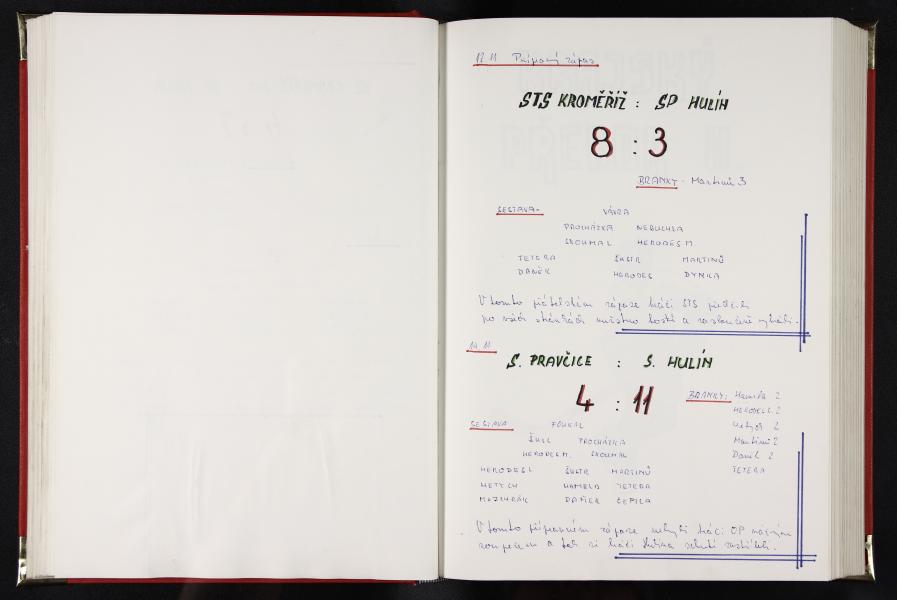 17. 11 Přípravný zápas
STS KROMĚŘÍŽ : SP HULÍN
8 : 3
BRANKY - Martinů 3
SESTAVA - VÁVRA
PROCHÁZKA NEBUCHLA
SKOUMAL HERODES M.
TETERA ŠUSTR MARTINŮ
DANĚK HERODES DYNKA
V tomto přátelském zápase hráči STS předčili
po všech stránkách mužstvo hostí a zaslouženě vyhráli.
19. 11
S. PRAVČICE : S. HULÍN
4 : 11
BRANKY: Hamela 2
HERODES L. 2
Metych 2
Martinů 2
Daněk 2
TETERA
SESTAVA POUKAL
ŠULC PROCHÁZKA
HERODES M. SKOUMAL
HERODES L ŠUSTR MARTINŮ
METYCH HAMELA TETERA
MAZURÁK DANĚK ČEPICA
V tomto přípravném zápase nebyli hráči OP vážným
soupeřem a tak si hráči Hulína zastříleli.